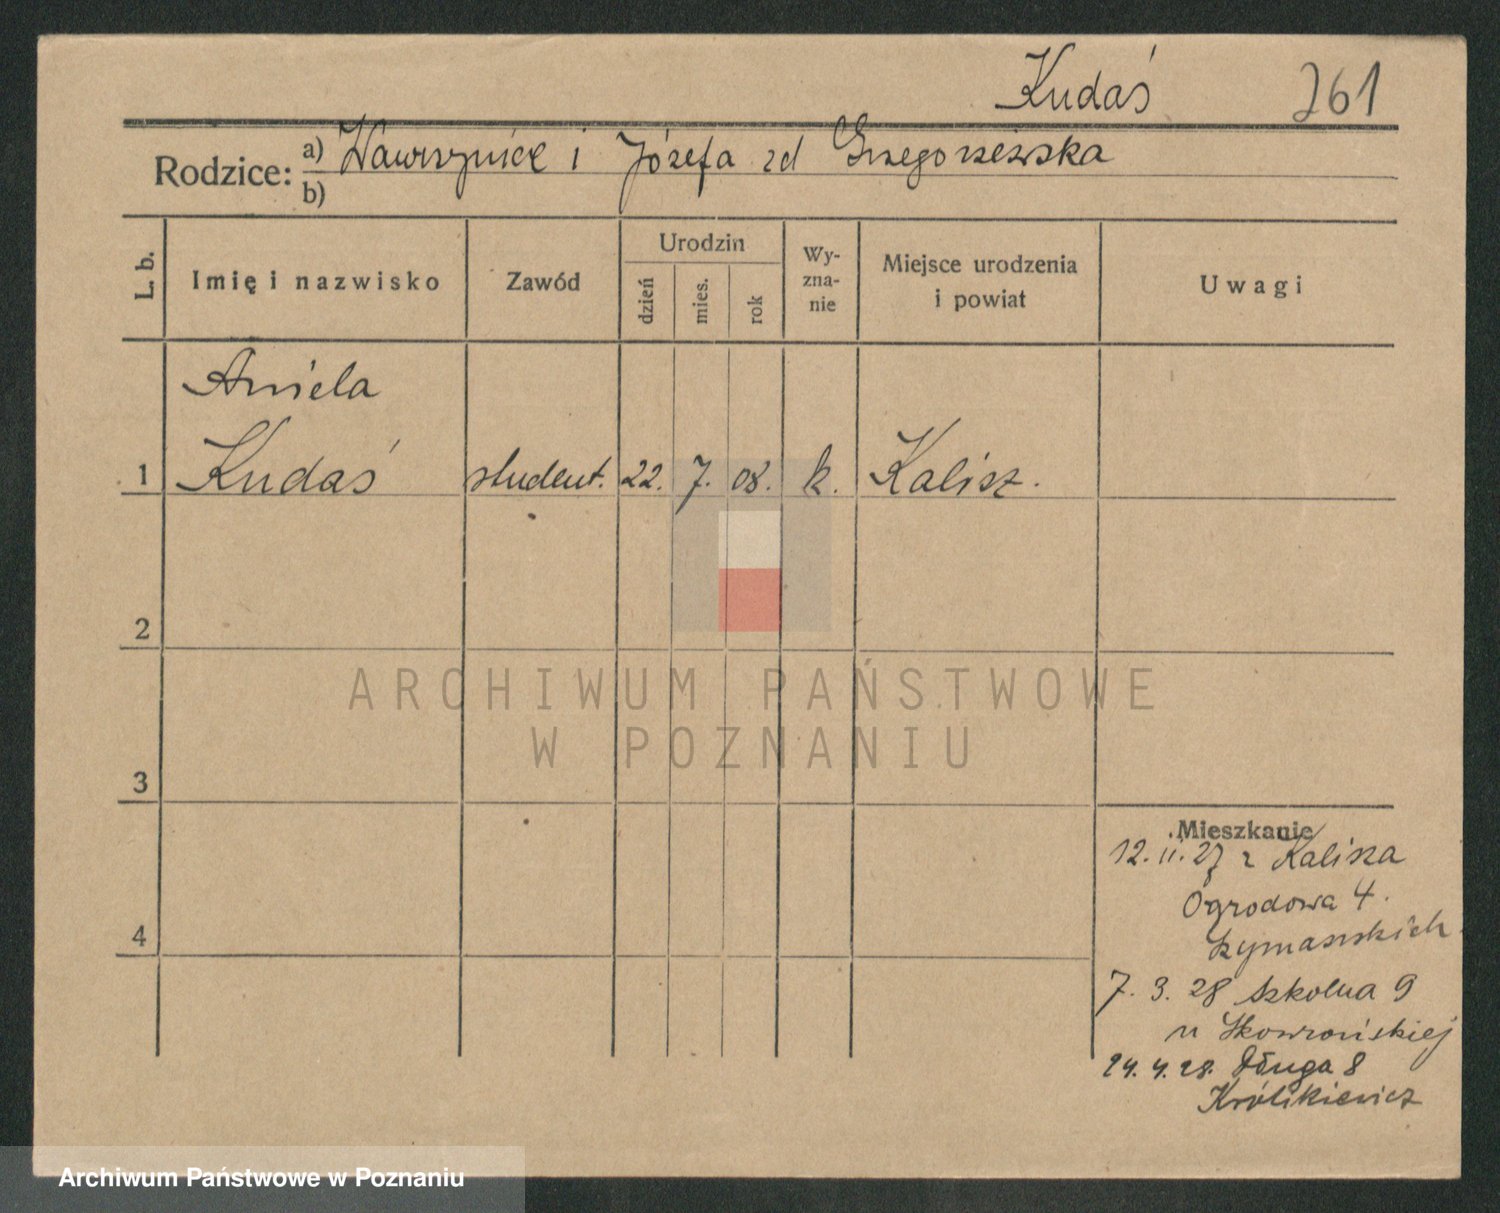 Kudaś 261
Rodzice: a) Wawrzyniec i Józefa zd Grzegorzewska
b)
L. b.
Imię i nazwisko
Zawód
Urodzin
dzień
mies.
rok
Wy-
zna-
nie
Miejsce urodzenia
i powiat
Uwagi
Aniela
1 Kudaś student. 22. 7. 08. k. Kalisz.
2
ARCHIWUM PAŃSTWOWE
W POZNANIU
3
Mieszkanie
12. 11. 27 z Kalisza
Ogrodowa 4.
4
Szymańskich
7. 3. 28 Szkolna 9
u Skowrońskiej
24. 4. 28. Długa 8
Królikiewicz
Archiwum Państwowe w Poznaniu